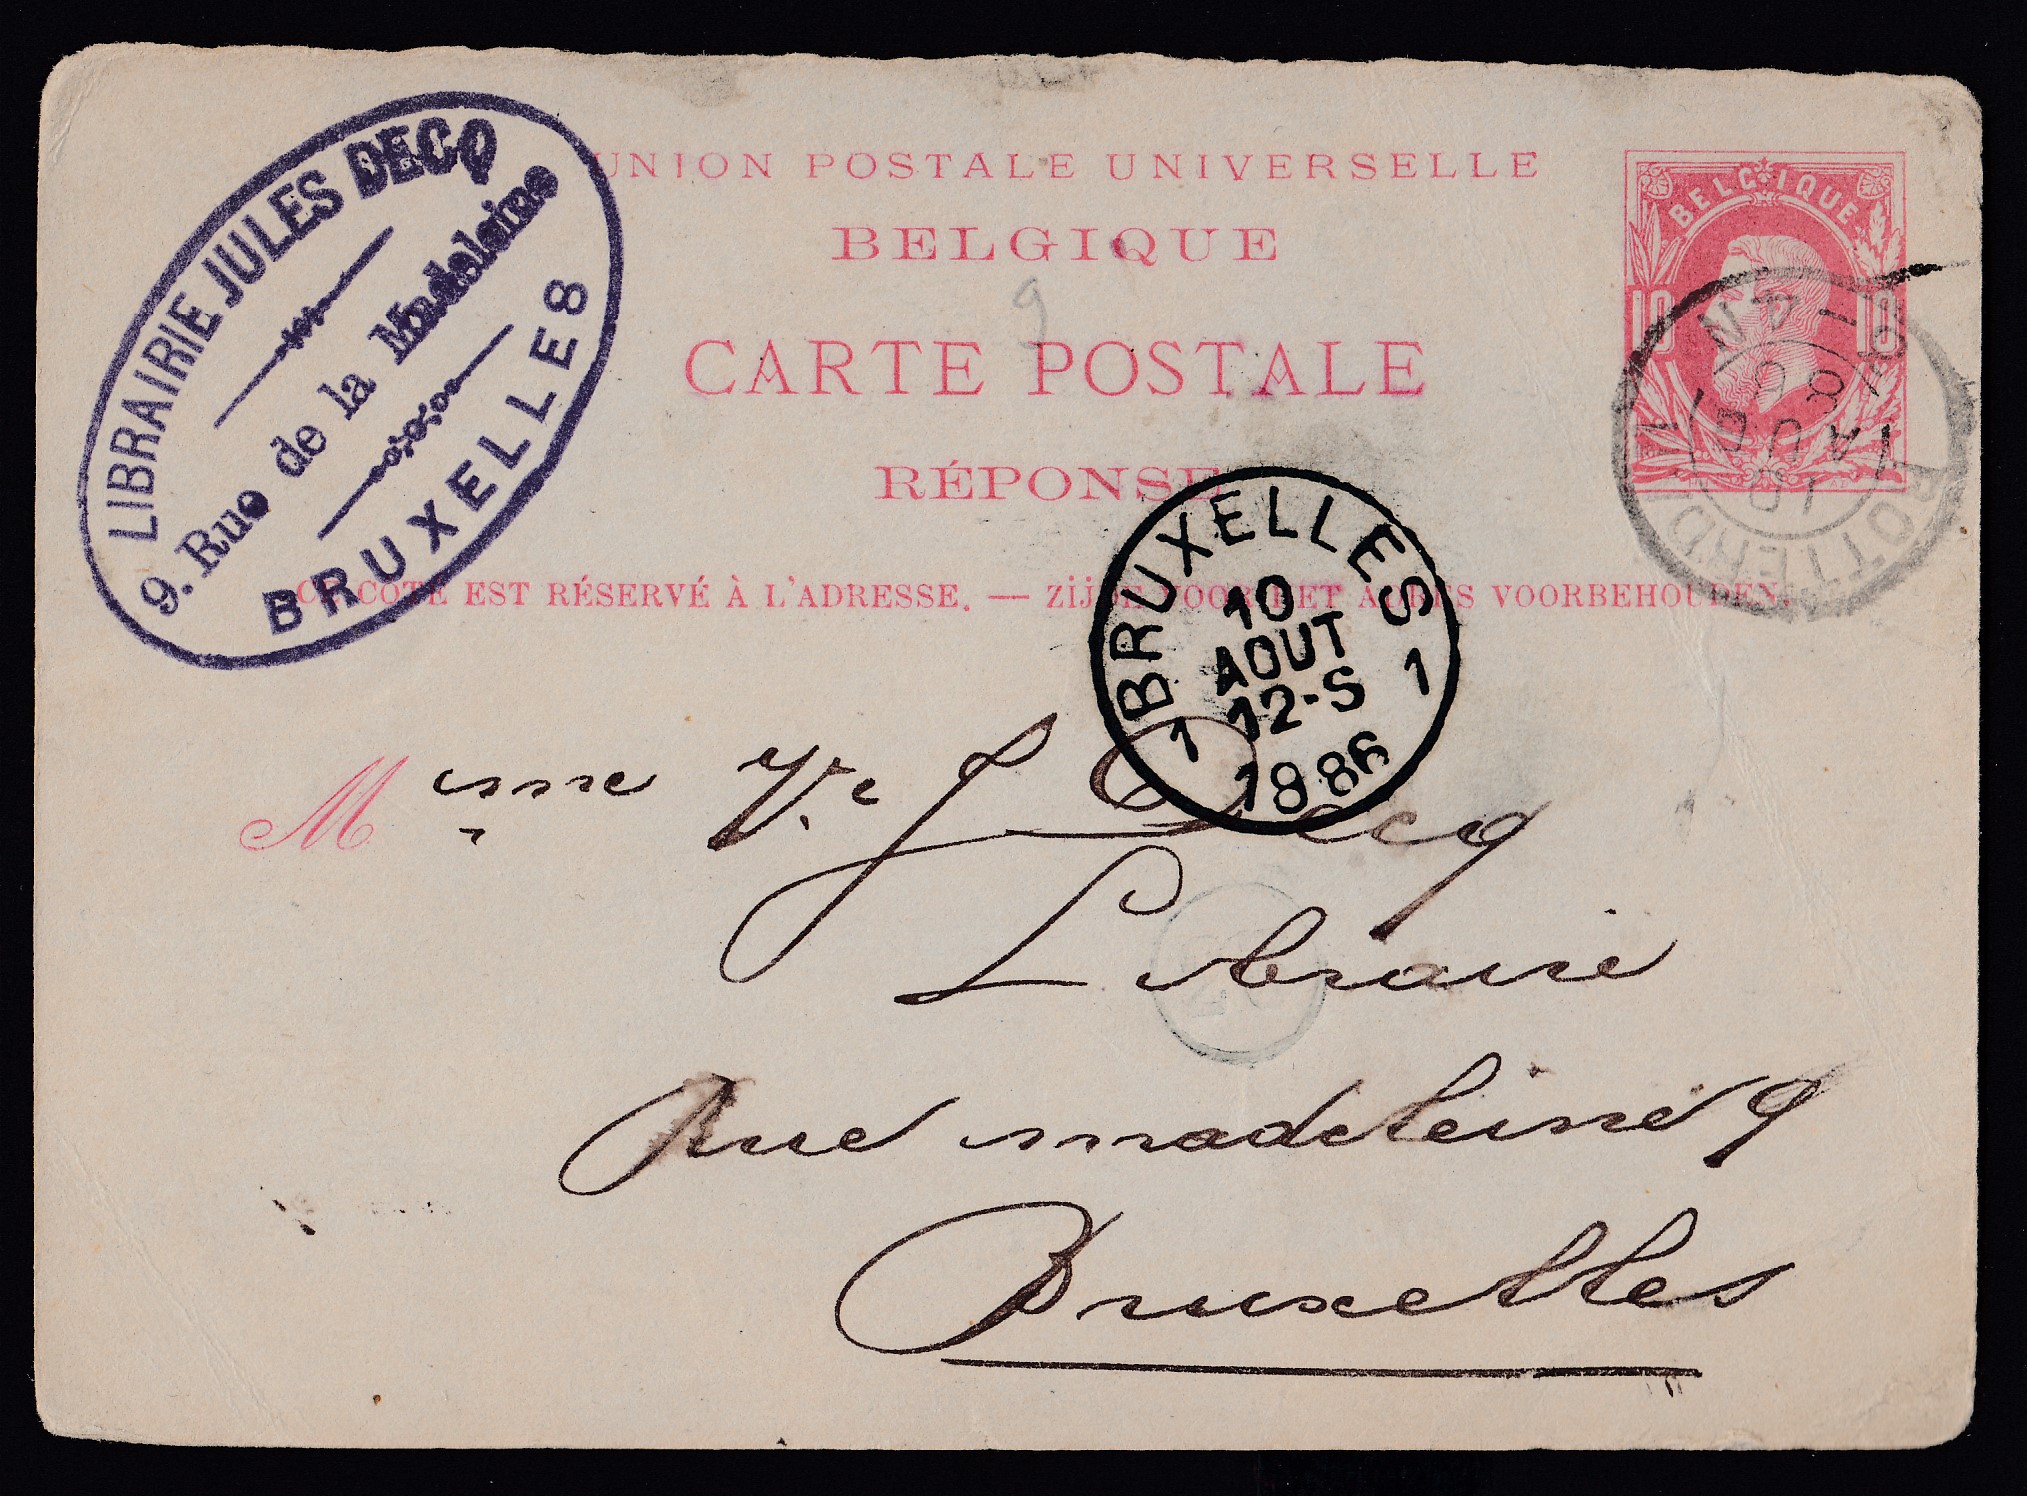 LIBRAIRIE JULES DECQ
9. Rue de la Madeleine
BRUXELLES
UNION POSTALE UNIVERSELLE
BELGIQUE
CARTE POSTALE
RÉPONSE
CE CÔTÉ EST RÉSERVÉ À L'ADRESSE. — ZIJDE VOOR HET ADRES VOORBEHOUDEN.
BELGIQUE
10 10
ROTTERDAM
10 AUG
86
BRUXELLES
10
AOUT
12-S
1 1
1886
9
Mme Ve J Decq
Librairie
Rue madeleine 9
Bruxelles